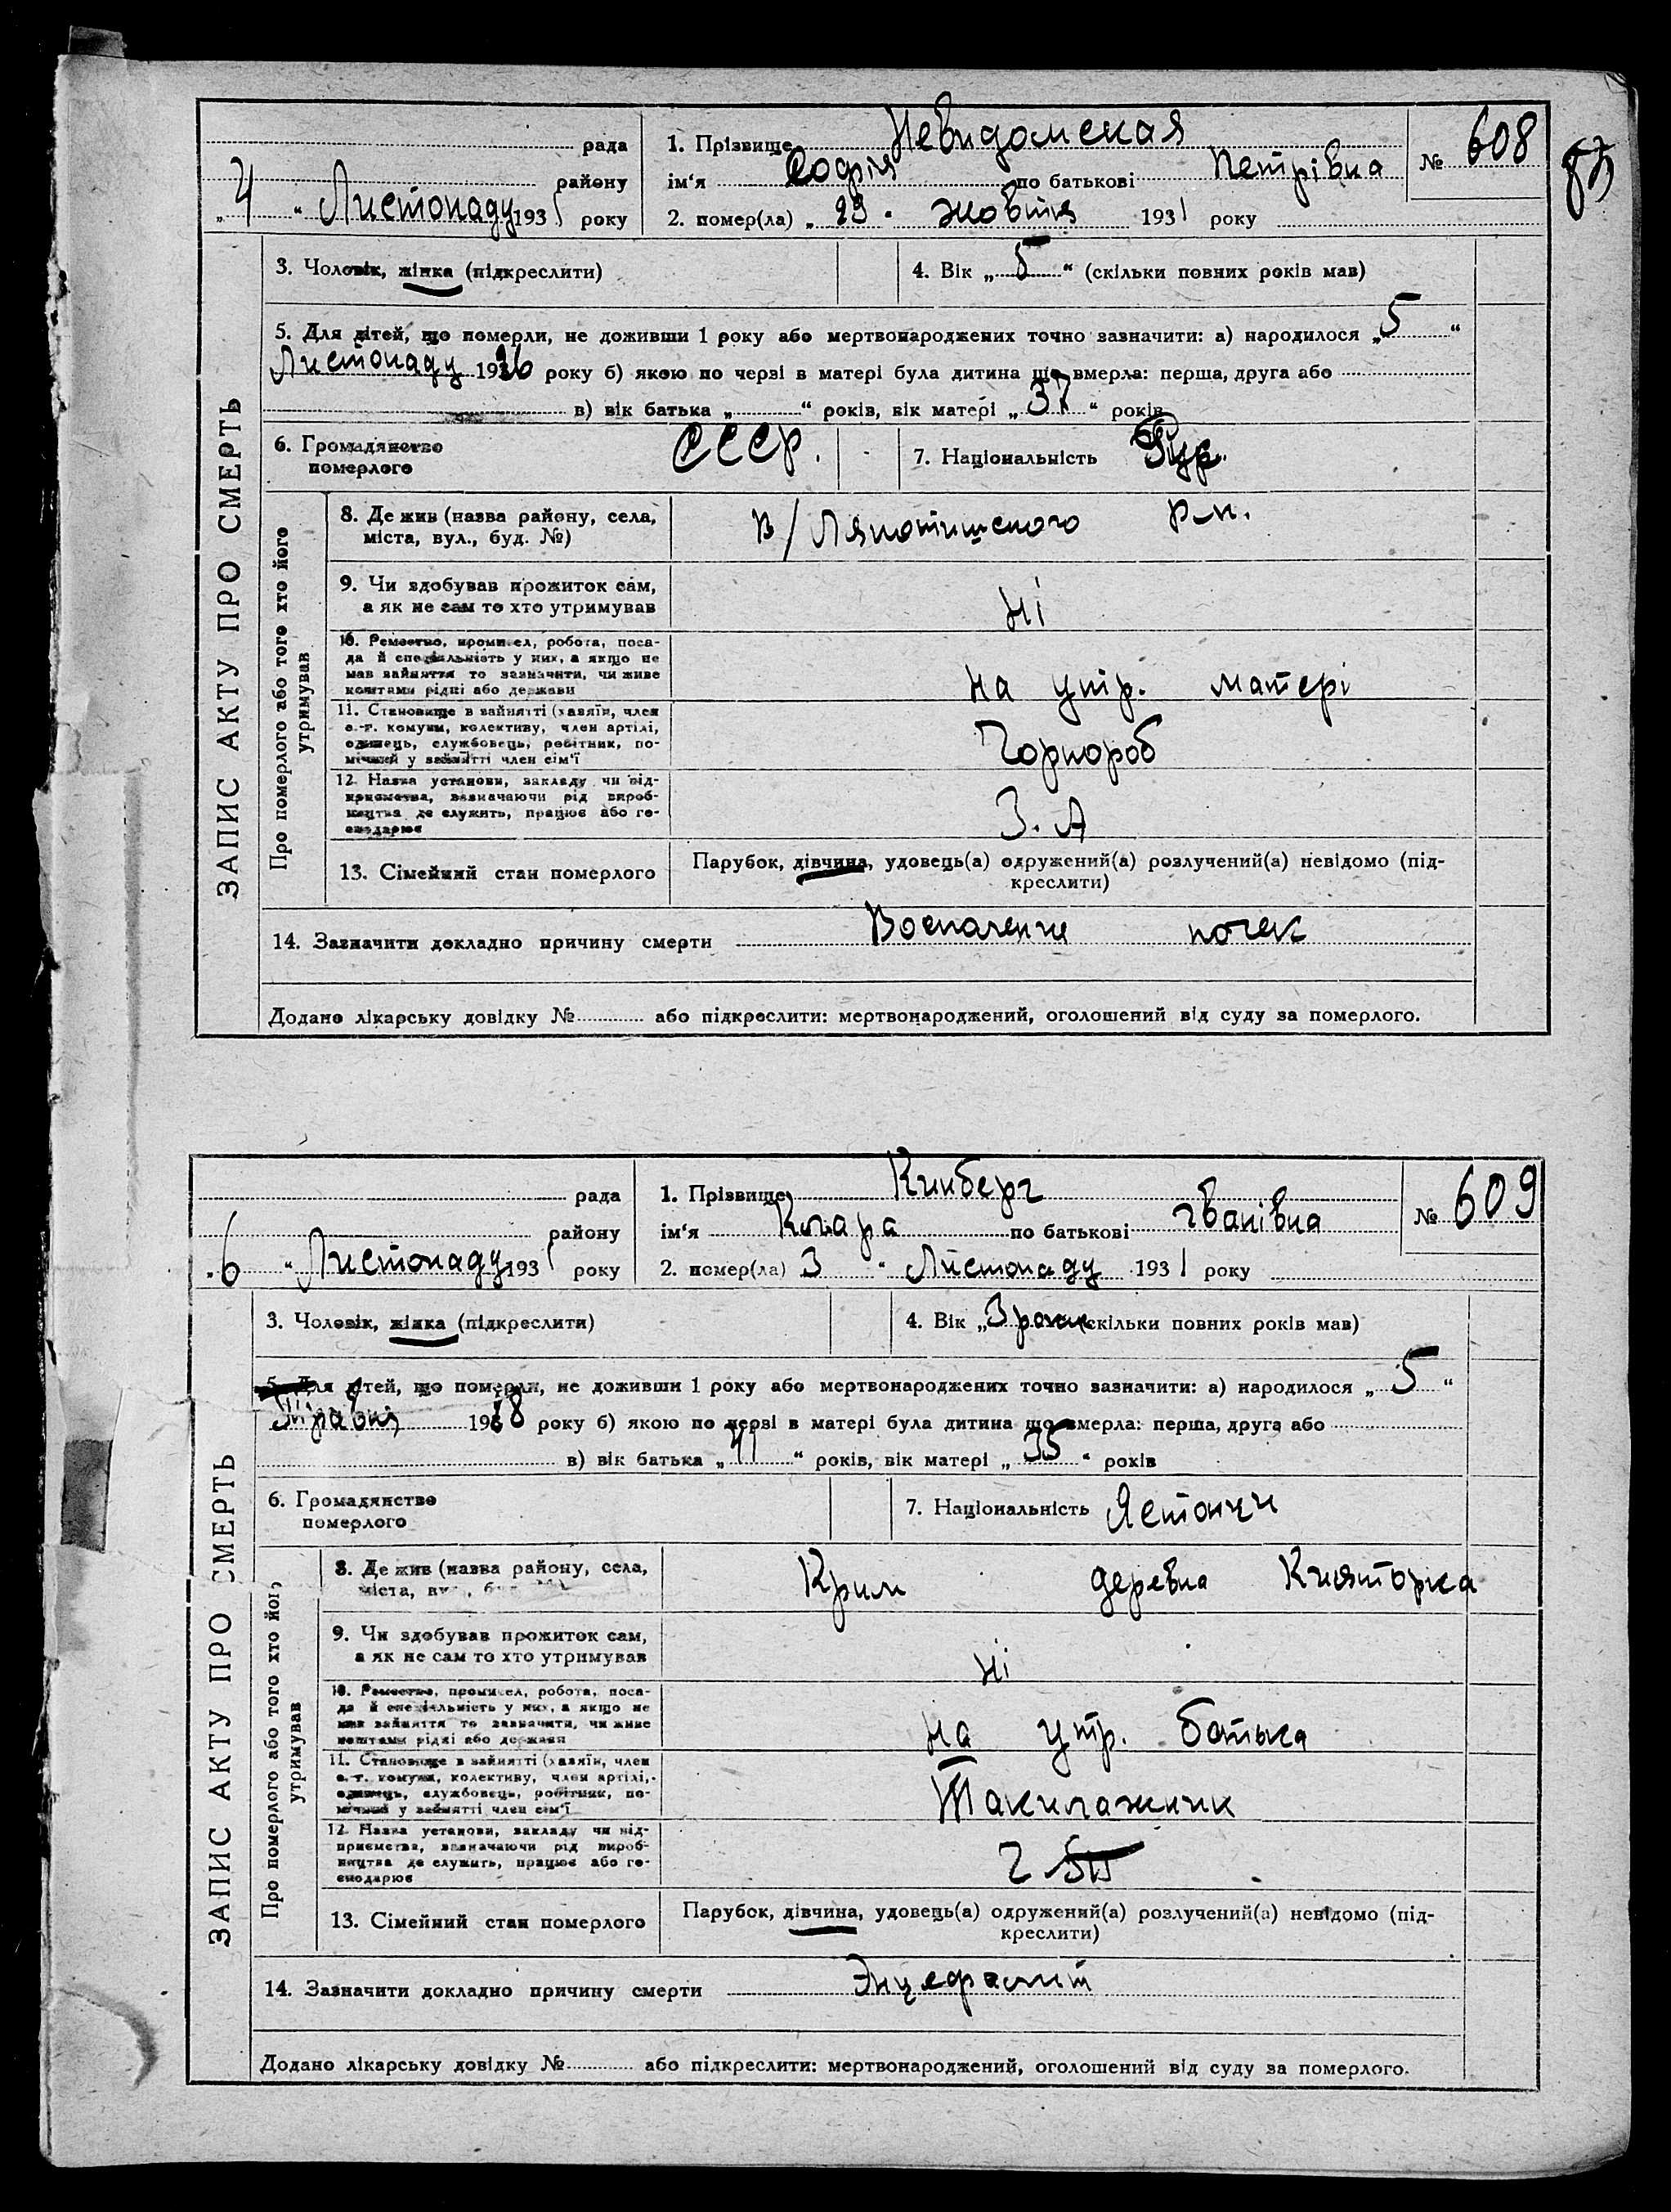 рада
1. Прізвище Невидомская
№ 608
району
ім'я Софія по батькові Петрівна
„4“ Листопаду 1931 року
2. помер(ла) „29“ жовтня 1931 року
3. Чоловік, жінка (підкреслити)
4. Вік „5“ (скільки повних років мав)
5. Для дітей, що померли, не доживши 1 року або мертвонароджених точно зазначити: а) народилося „5“
Листопаду 1926 року б) якою по черзі в матері була дитина що вмерла: перша, друга або
в) вік батька „ “ років, вік матері „37“ років
6. Громадянство
померлого
СССР.
7. Національність
ЗАПИС АКТУ ПРО СМЕРТЬ
Про померлого або того хто його
утримував
8. Де жив (назва району, села,
міста, вул., буд. №)
9. Чи здобував прожиток сам,
а як не сам то хто утримував
Ні
10. Ремество, промисел, робота, поса-
да й спеціальність у них, а якщо не
мав зайняття то зазначити, чи живе
коштами рідні або держави
на утр. матері
11. Становище в зайнятті (хазяїн, член
с.-г. комуни, колективу, член артілі,
одинець, службовець, робітник, по-
мічний у зайнятті член сім'ї
Чорнороб
12. Назва установи, закладу чи під-
приємства, зазначаючи рід вироб-
ництва де служить, працює або го-
сподарює
З. А
13. Сімейний стан померлого
Парубок, дівчина, удовець(а) одружений(а) розлучений(а) невідомо (під-
креслити)
14. Зазначити докладно причину смерти Воспаление почек
Додано лікарську довідку № або підкреслити: мертвонароджений, оголошений від суду за померлого.
рада
1. Прізвище Кинберг
№ 609
району
ім'я Клара по батькові Іванівна
„6“ Листопаду 1931 року
2. помер(ла) 3 “ Листопаду 1931 року
3. Чоловік, жінка (підкреслити)
4. Вік „3 роки (скільки повних років мав)
5. Для дітей, що померли, не доживши 1 року або мертвонароджених точно зазначити: а) народилося „5“
Травня 1928 року б) якою по черзі в матері була дитина що вмерла: перша, друга або
в) вік батька „41“ років, вік матері „35“ років
6. Громадянство
померлого
7. Національність Естонци
ЗАПИС АКТУ ПРО СМЕРТЬ
Про померлого або того хто його
утримував
8. Де жив (назва району, села,
міста,
Крим деревна
9. Чи здобував прожиток сам,
а як не сам то хто утримував
Ні
10. Ремество, промисел, робота, поса-
да й спеціальність у них, а якщо не
мав зайняття то зазначити, чи живе
коштами рідні або держави
на утр. батька
11. Становище в зайнятті (хазяїн, член
с.-г. комуни, колективу, член артілі,
одинець, службовець, робітник, по-
мічний у зайнятті член сім'ї
Такилажник
12. Назва установи, закладу чи під-
приємства, зазначаючи рід вироб-
ництва де служить, працює або го-
сподарює
13. Сімейний стан померлого
Парубок, дівчина, удовець(а) одружений(а) розлучений(а) невідомо (під-
креслити)
14. Зазначити докладно причину смерти Энцефалит
Додано лікарську довідку № або підкреслити: мертвонароджений, оголошений від суду за померлого.